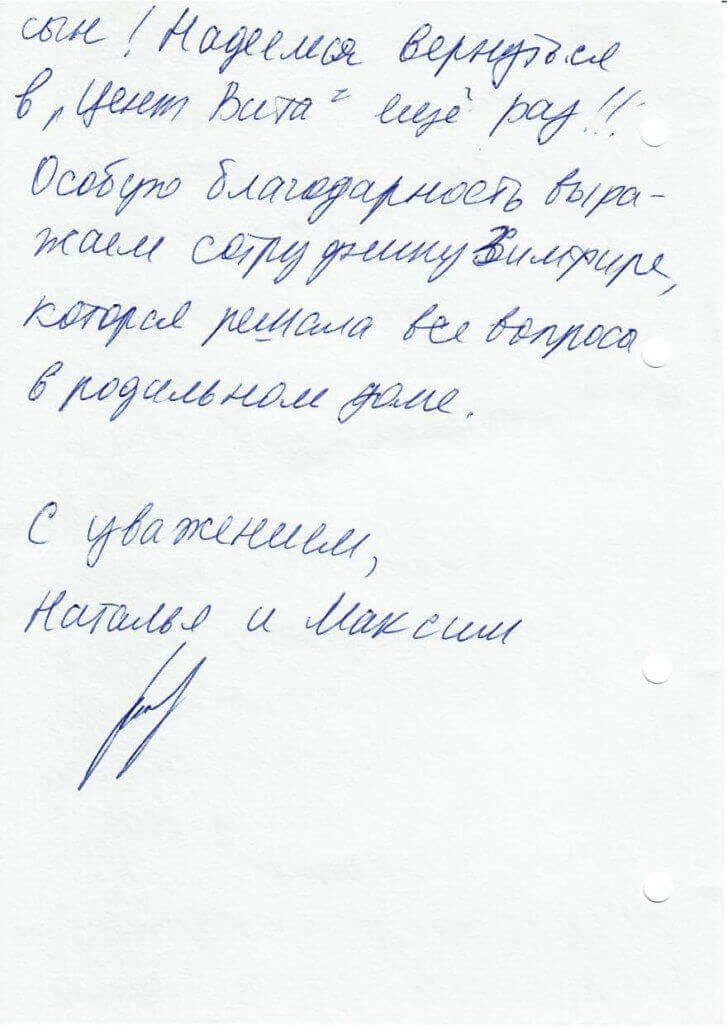 сын! Надеемся вернуться
в „Цент Вита" ещё раз!!
Особую благодарность выра-
жаем сотруднику Зимфире,
которая решала все вопросы
в родильном доме.
С уважением,
Наталья и Максим